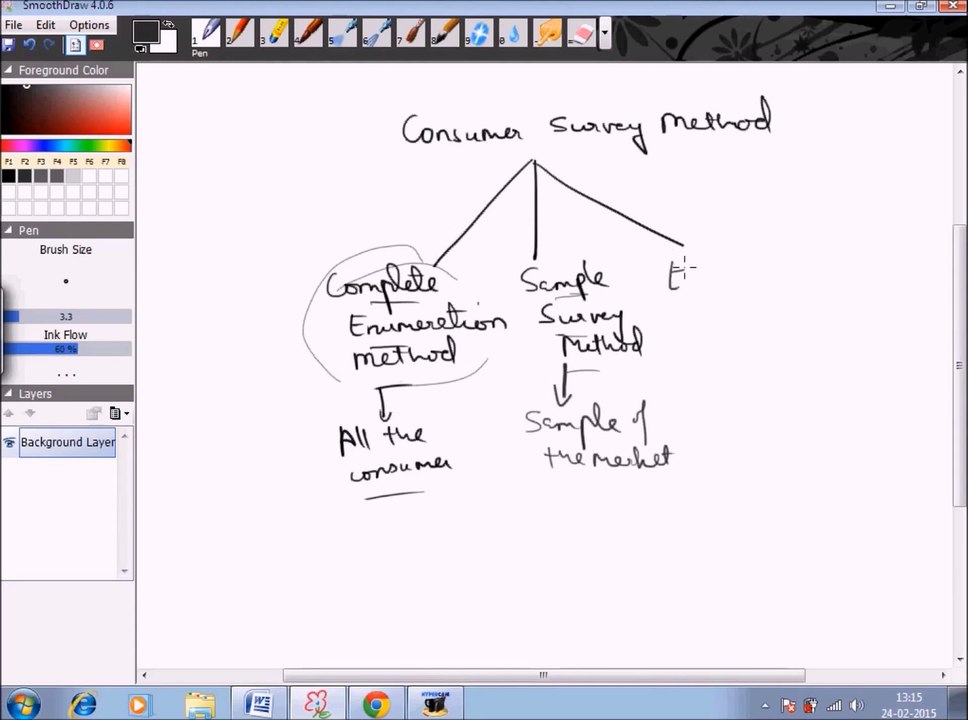 SmoothDraw 4.0.6
File Edit Options
1 2 3 4 5 6 7 8 9 0
Pen
Foreground Color
F1 F2 F3 F4 F5 F6 F7 F8
Pen
Brush Size
3.3
Ink Flow
60 %
...
Layers
Background Layer
Consumer Survey Method
Complete
Enumeretion
method
All the
consumer
Sample
Survey
Method
Sample of
the merket
HYPERCAM
13:15
24-02-2015